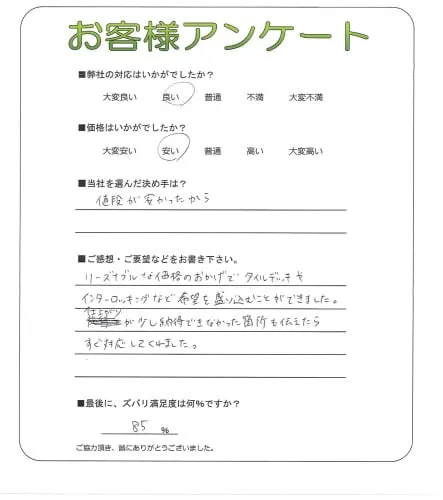 お客様アンケート
■弊社の対応はいかがでしたか？
大変良い 良い 普通 不満 大変不満
■価格はいかがでしたか？
大変安い 安い 普通 高い 大変高い
■当社を選んだ決め手は？
値段が安かったから
■ご感想・ご要望などをお書き下さい。
リーズナブルな価格のおかげでタイルデッキや
インターロッキングなど希望を盛り込むことができました。
仕上がり
が少し納得できなかった箇所も伝えたら
すぐ対応してくれました。
■最後に、ズバリ満足度は何%ですか？
85 %
ご協力頂き、誠にありがとうございました。